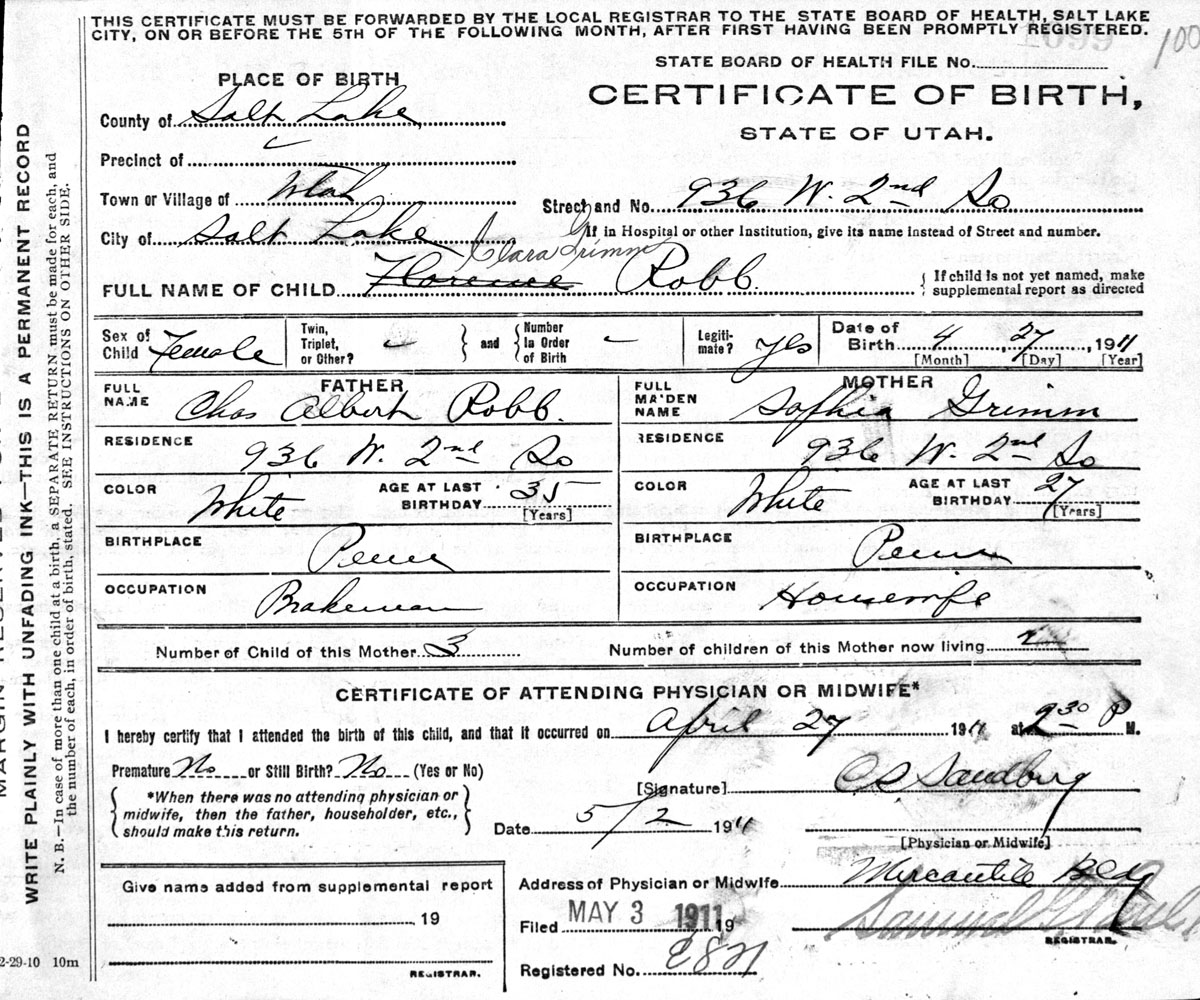 THIS CERTIFICATE MUST BE FORWARDED BY THE LOCAL REGISTRAR TO THE STATE BOARD OF HEALTH, SALT LAKE
CITY, ON OR BEFORE THE 5TH OF THE FOLLOWING MONTH, AFTER FIRST HAVING BEEN PROMPTLY REGISTERED.
STATE BOARD OF HEALTH FILE No.
CERTIFICATE OF BIRTH,
STATE OF UTAH.
PLACE OF BIRTH
County of Salt Lake
Precinct of
Town or Village of Utah
Street and No. 936 W. 2nd So
City of Salt Lake
If in Hospital or other Institution, give its name instead of Street and number.
Clara Grimm
FULL NAME OF CHILD Florence Robb.
If child is not yet named, make
supplemental report as directed
Sex of Child Female
Twin, Triplet, or Other?
and Number in Order of Birth
Legitimate? yes
Date of Birth 4, 27, 1911
[Month] [Day] [Year]
FATHER
FULL NAME Chas Albert Robb.
RESIDENCE 936 W. 2nd So
COLOR White
AGE AT LAST BIRTHDAY 35
[Years]
BIRTHPLACE Penn
OCCUPATION Brakeman
MOTHER
FULL MAIDEN NAME Sophia Grimm
RESIDENCE 936 W. 2nd So
COLOR White
AGE AT LAST BIRTHDAY 27
[Years]
BIRTHPLACE Penn
OCCUPATION Housewife
Number of Child of this Mother 3
Number of children of this Mother now living 2
CERTIFICATE OF ATTENDING PHYSICIAN OR MIDWIFE*
I hereby certify that I attended the birth of this child, and that it occurred on April 27 1911 at 2 30 P M.
Premature No or Still Birth? No (Yes or No)
*When there was no attending physician or
midwife, then the father, householder, etc.,
should make this return.
[Signature] C S Sandberg
Date 5/2 1911
[Physician or Midwife]
Give name added from supplemental report
19
REGISTRAR.
Address of Physician or Midwife Mercantile Bldg
Filed MAY 3 1911 19
REGISTRAR.
Registered No.
WRITE PLAINLY WITH UNFADING INK—THIS IS A PERMANENT RECORD
N. B.—In case of more than one child at a birth, a SEPARATE RETURN must be made for each, and
the number of each, in order of birth, stated. SEE INSTRUCTIONS ON OTHER SIDE.
2-29-10 10m